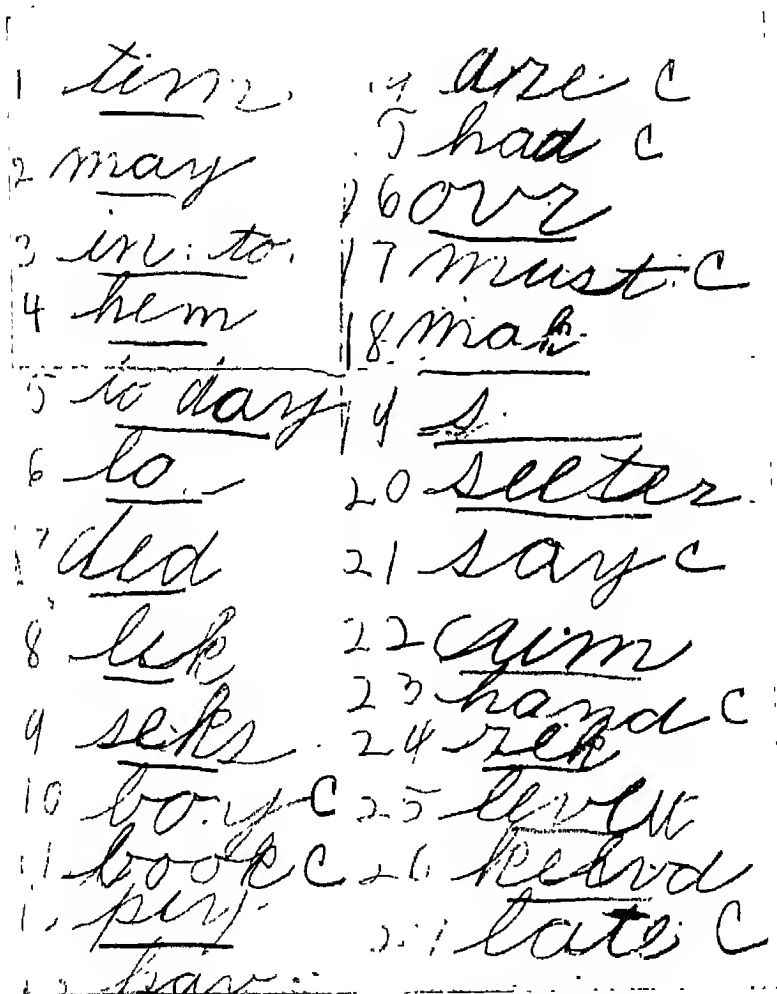 1 tim
2 may
3 in to
4 hem
5 to day
6 lo
7 ded
8 lik
9 seks
10 boy C
11 book C
piy
hav
are C
had C
16 ovr
17 must C
18
19 s
20 seeter
21 say C
22
23 hand C
24 rek
25
26
late C